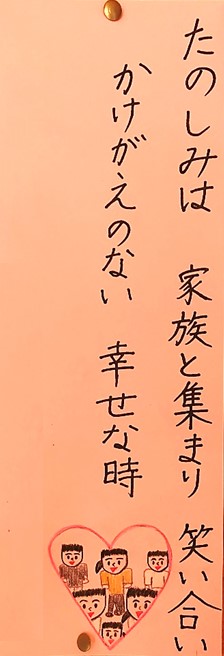 たのしみは　家族と集まり　笑い合い
かけがえのない　幸せな時